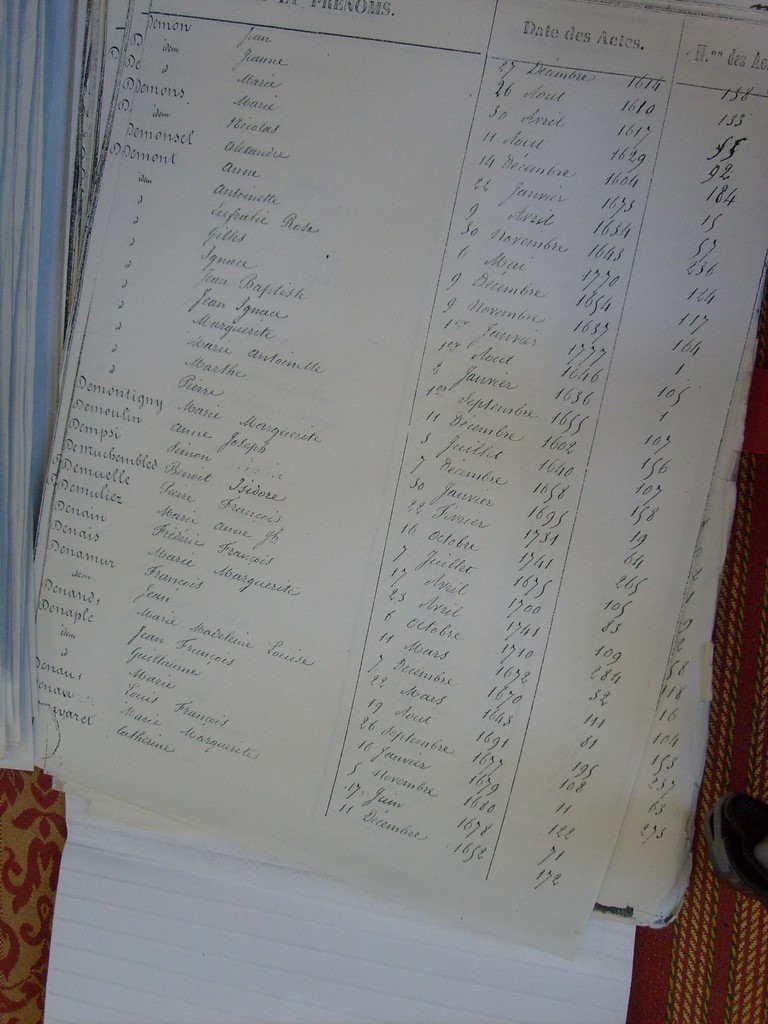 PRÉNOMS. Date des Actes. N.os des Ac
Demon Jean 27 Décembre 1614 138
idem Jeanne 26 Aout 1610 133
d Marie 30 Avril 1617 55
Demons Marie 11 Aout 1629 92
idem Nicolas 14 Décembre 1604 184
Demonsel Alexandre 22 Janvier 1673 15
Demont Anne 9 Avril 1634 57
idem Antoinette 30 Novembre 1643 236
d Eufratie Rose 6 Mai 1770 124
d Gilles 9 Décembre 1654 117
d Ignace 9 Novembre 1637 164
d Jean Baptiste 1er Janvier 1777 1
d Jean Ignace 1er Aout 1646 105
d Marguerite 8 Janvier 1636 1
d Marie Antoinette 1er Septembre 1655 107
d Marthe 11 Décembre 1602 156
d Pierre 3 Juillet 1640 107
Demontigny Marie Marguerite 7 Décembre 1658 158
Demoulin Anne Joseph 30 Janvier 1695 19
Dempsi Simon 22 Février 1731 64
Demuchembled Benoit Isidore 16 Octobre 1741 265
Demuelle Pierre François 7 Juillet 1675 105
Demuliez Marie Anne Jh 17 Avril 1700 83
Denain Frédéric François 23 Avril 1741 109
Denais Marie Marguerite 6 Octobre 1710 284
Denamur François 11 Mars 1672 32
idem Jean 7 Décembre 1670 111
Marie Madeleine Louise 22 Mars 1643 81
Denaple Jean François 19 Aout 1691 195
idem Guillaume 26 Septembre 1677 108
d Marie 16 Janvier 1679 11
Louis François 5 Novembre 1680 122
Marie Marguerite 17 Juin 1678 71
Catherine 11 Décembre 1652 172
58
118
16
104
153
237
63
273